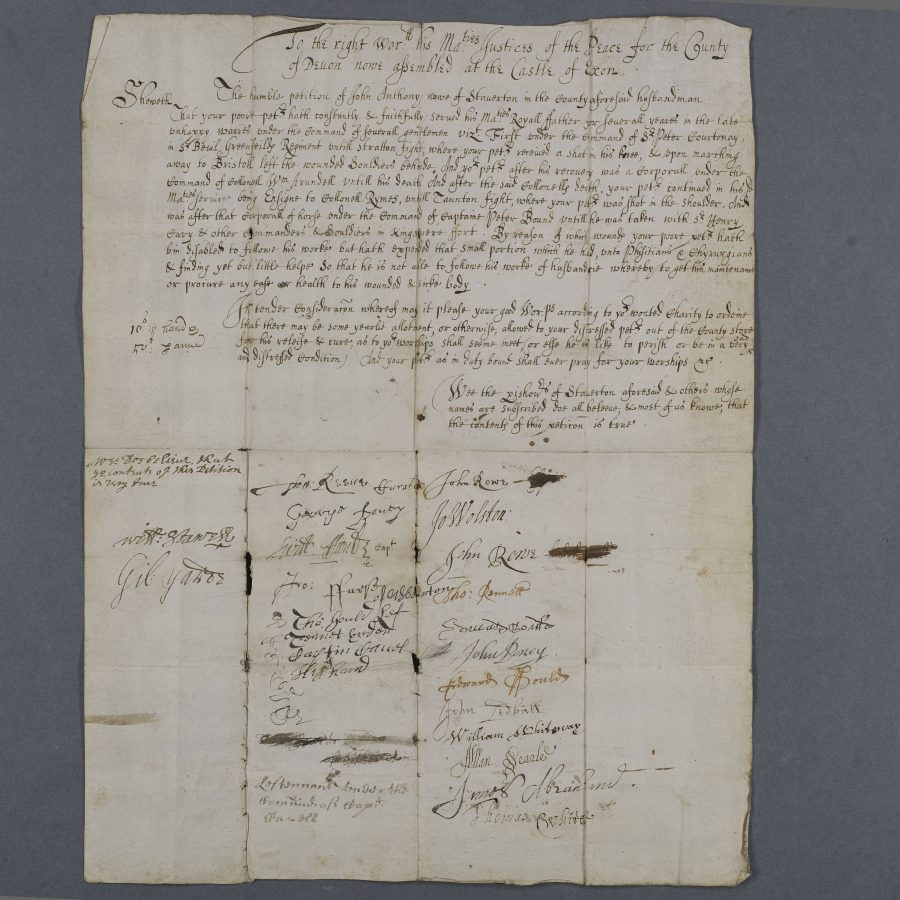 To the right Wor:ll his Ma:ties Justices of the Peace for the County
of Devon nowe assembled at the Castle of Exon
The humble petition of John Anthony nowe of Staverton in the County aforesaid husbandman
Sheweth
That your poore pet:r hath constantly & faithfully served his Ma:ties Royall ffather for severall yeares in the late
unhappy warres under the Command of severall gentlemen viz:t First under the Command of S:r Peter Courtenay,
in S:r Bevil Greenfeilds Regiment untill Stratton fight, where your pet:r received a shot in his knee, & upon marching
away to Bristoll left the wounded Souldiers behinde, And yo:r pet:r after his recovery was a Corporall under the
Command of Collonell W:m Arundell untill his death And after the said Collonells death, your pet:r continued in his s:d
Ma:ties service being Ensigne to Collonell Rymes, untill Taunton fight, where your pet:r was shot in the shoulder, And
was after that Corporall of horse under the Command of Captaine Peter Bound untill he was taken with S:r Henry
Cary & other Commanders & Souldiers in Kingswere fort. By reason of which wounds your poore pet:r hath
bin disabled to followe his worke but hath expended that small portion which he had, unto Phisitians & Chyrurgians
& finding yet but little helpe So that he is not able to followe his worke of husbandrie whereby to get his maintenance
or procure any ease or health to his wounded & sicke body.
In tender Consideracon whereof may it please your good Wor:ps according to yo:r wonted Charity to ordeine
that there may be some yearlie allotment, or otherwise, alowed to your distressed pet:r out of the County store
for his releife & cure, as to yo:r worships shall seeme meet (or else he is like to perish or be in a very sad
and distressed Condition) And your pet:r as in duty bound shall ever pray for your worships &c
in hand
Wee the pishon:rs of Staverton aforesaid & others whose
names are subscribed doe all beleeve, & most of us knowe, that
the contents of this peticon is true
Wee doe believe that
ye contents of this Petition
is very true
Will:
Gil Yarde
Curate
George
Capt
Fr:
Tho: Gould
Leftennant under the
Command of Capt:
John Rowe
Jo Wolston
John Rowe
Tho: Kennett
John
Edward Gould
John Tidball
William Whiteway
Allan Searle
James
Thomas White